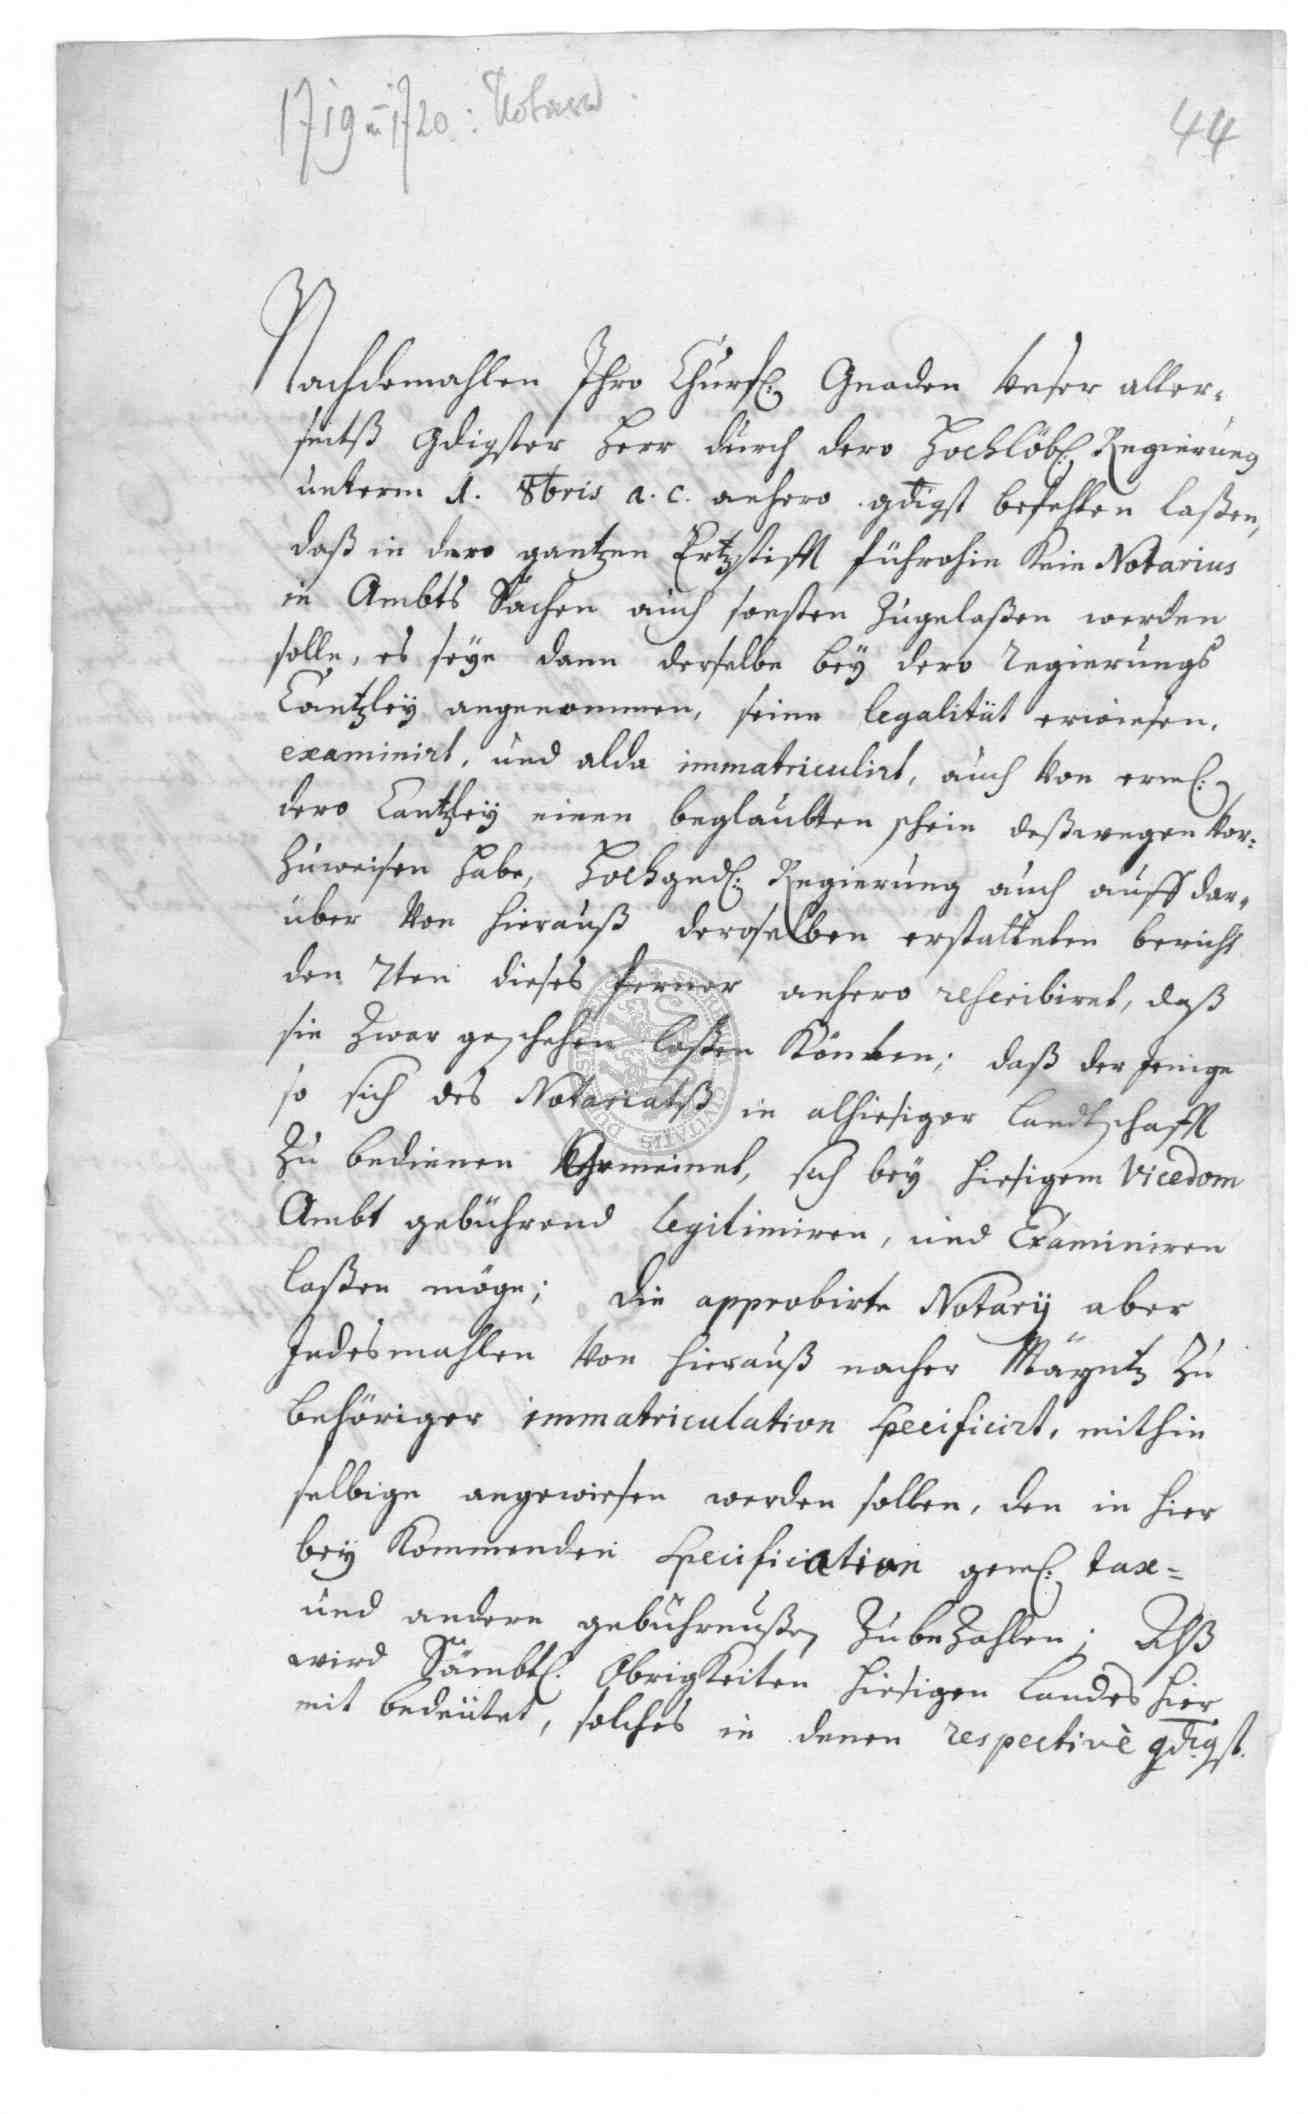 1719 u 1720: Notare
44
Nachdemahlen Ihro Churf: Gnaden Unser aller-
seitß Gdigster Herr durch dero Hochlöb: Regierung
unterm 1. 8bris a. c. anhero gdigst befehlen laßen,
daß in dero gantzen Ertzstifft führohin Kein Notarius
in Ambts Sachen auch sonsten Zugelaßen werden
solle, es seye dann derselbe bey dero Regierungs
Cantzley angenommen, seine legalität erwiesen,
examinirt, und alda immatriculirt, auch Von erm:
dero Cantzley einen beglaubten schein deßwegen Vor-
Zuweisen habe, Hochged: Regierung auch auff dar-
über Von hierauß deroselben erstatteten bericht
den 7ten dieses ferner anhero rescribiret, daß
sie Zwar geschehen laßen Könten; daß der Jenige
so sich des Notariatß in alhiesiger Landtschafft
Zu bedienen Vermeinet, sich bey hiesigem Vicedom
Ambt gebührend legitimiren, und Examiniren
laßen möge; die approbirte Notarÿ aber
Jedesmahlen Von hierauß nacher Mäyntz Zu
behöriger immatriculation specificirt, mithin
selbige angewiesen werden sollen, den in hier
bey Kommenden specification gem: tax-
und andern gebuhrnußen ZubeZahlen; Alß
wird Sämbtl: Obrigkeiten hiesigen Landes hier
mit bedeütet, solches in denen respectivè gdigst.